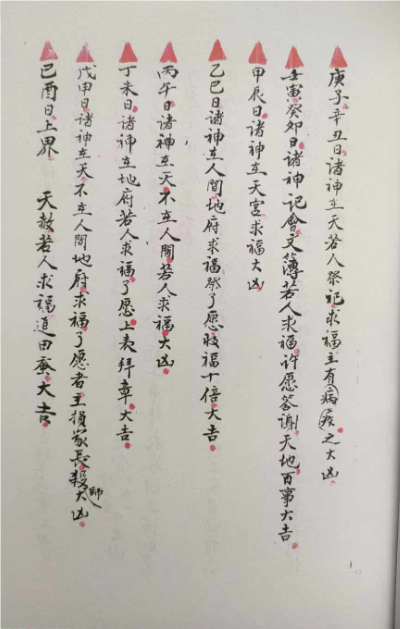 庚子辛丑日诸神在天若人祭祀求福主有病疾之大凶
壬寅癸卯日诸神记会文簿若人求福许愿答谢天地百事大吉
甲辰日诸神在天宫求福大凶
乙巳日诸神在人间地府求福祭了愿收福十倍大吉
丙午日诸神在天不在人间若人求福大凶
丁未日诸神在地府若人求福了愿上表拜章大吉
戊申日诸神在天不在人间地府求福了愿者主损家长殺師大凶
己酉日上界 天赦若人求福道田蚕大吉